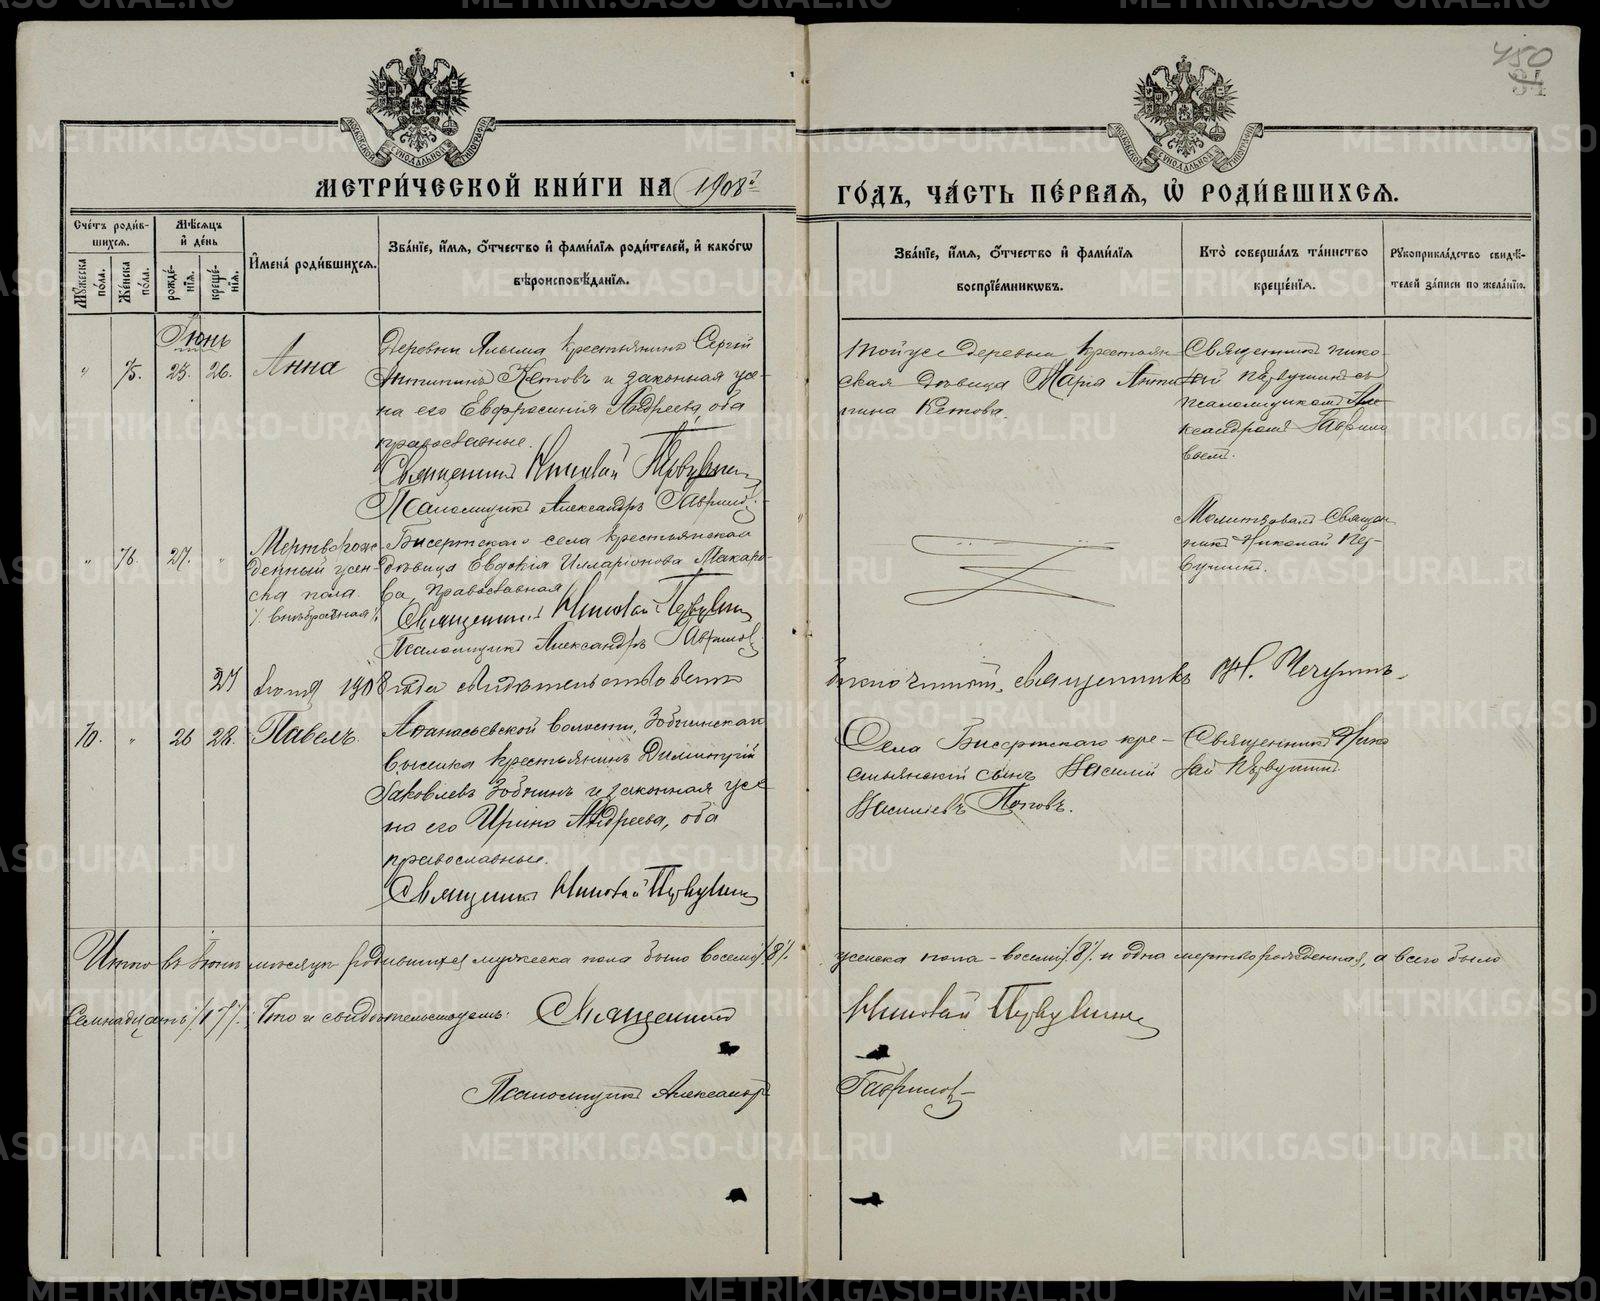 450
34
МОСКОВСКОЙ СѴНОДАЛЬНОЙ ТИПОГРАФІИ
МОСКОВСКОЙ СѴНОДАЛЬНОЙ ТИПОГРАФІИ
МЕТРИ́ЧЕСКОЙ КНИ́ГИ НА 1908й
ГО́ДЪ, ЧА́СТЬ ПЕ́РВАЯ, Ѡ РОДИ́ВШИХСЯ.
Сче́тъ роди́вшихся.
Мѣ́сяцъ и де́нь
Мꙋ́жеска по́ла.
Же́нска по́ла.
рожде́нія.
креще́нія.
Имена́ роди́вшихся.
Зва́ніе, и́мя, ѻ́тчество и фами́лія роди́телей, и како́гѡ вѣроисповѣ́данія.
Зва́ніе, и́мя, ѻ́тчество и фами́лія воспріе́мникѡвъ.
Кто̀ соверша́лъ та́инство креще́нія.
Рꙋкоприкла́дство свидѣ́телей за́писи по жела́нію.
Іюнь
" 75. 25. 26. Анна
Деревни Алыма крестьянинъ Сергій
Антипинъ Кетовъ и законная же-
на его Евфросинія Андреева, оба
православные.
Священникъ Николай Первушинъ
Псаломщикъ Александръ Гаврилов
Той же деревни крестьян
ская дѣвица Марія Анти
пина Кетова.
Священникъ Нико-
лай Первушинъ съ
псаломщикомъ Але
ксандромъ Гаврило
вымъ.
" 76. 27. "
Мертворож-
денный жен-
ска пола.
/:внѣбрачная:/
Бисертского села крестьянская
дѣвица Евдокія Илларіонова Макаро-
ва, православная
Священникъ Николай Первушинъ
Псаломщикъ Александръ Гаврилов
Молитвовалъ Священ
никъ Николай Пер-
вушинъ.
27 Іюня 1908 года свидѣтельствовалъ
священникъ
10. " 26 28. Павелъ.
Афанасьевской волости, Зобнинскаго
выселка крестьянинъ Димитрій
Яковлевъ Зобнинъ и законная же
на его Ирина Андреева, оба
православные.
Священникъ Николай Первушинъ
Села Бисертского кре-
стьянскій сынъ Василій
Василіевъ Поповъ.
Священникъ Нико
лай Первушинъ.
Итого въ Іюнѣ мѣсяцѣ родившихся мужеска пола было восемь /:8:/
женска пола - восемь /:8:/ и одна мертворожденная, а всего было
Семнадцать /:17:/. Что и свидѣтельствуемъ: Священникъ
Николай Первушинъ
Псаломщикъ Александръ
Гаврилов
METRIKI.GASO-URAL.RU